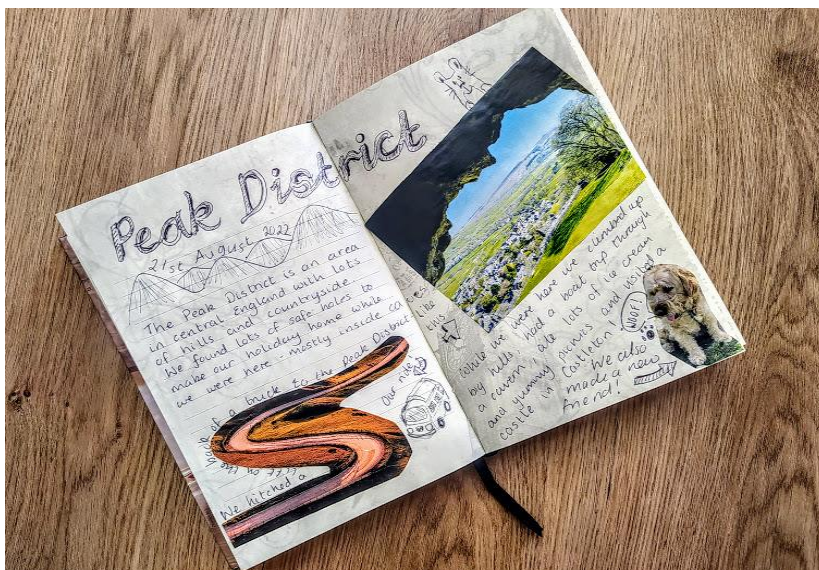 Peak District
21st August 2022
The Peak District is an area
in central England with lots
of hills and countryside.
We found lots of safe holes to
make our holiday home while
we were here - mostly inside
We hitched a
lift on the
back of a truck to the Peak District
Our ride!
like
this
While we were here we climbed up
hills, had a boat trip through
a cavern, ate lots of ice cream
and yummy picnics and visited a
castle in Castleton!
We also
made a new
friend!
WOOF!